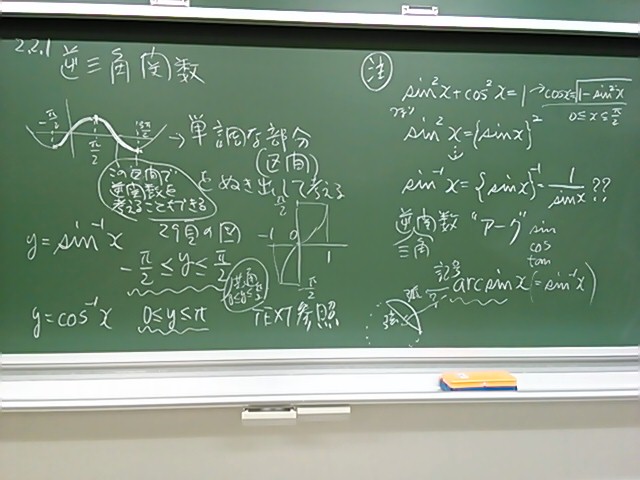 2.2.1 逆三角関数
-π/2
π/2
3π/2
→単調な部分
(区間)
をぬき出して考える
この区間で
逆関数を
考えることができる
y=sin⁻¹x 29頁の図
-π/2≦y≦π/2
共通
π/2
-1 0 1
-π/2
y=cos⁻¹x 0≦y≦π TEXT参照
注
sin²x+cos²x=1 →cosx=√1-sin²x
0≦x≦π/2
sin²x={sinx}²
sin⁻¹x={sinx}⁻¹=1/sinx??
逆関数 "アーク" sin
三角 cos
tan
記号 arcsinx(=sin⁻¹x)
弧
弦